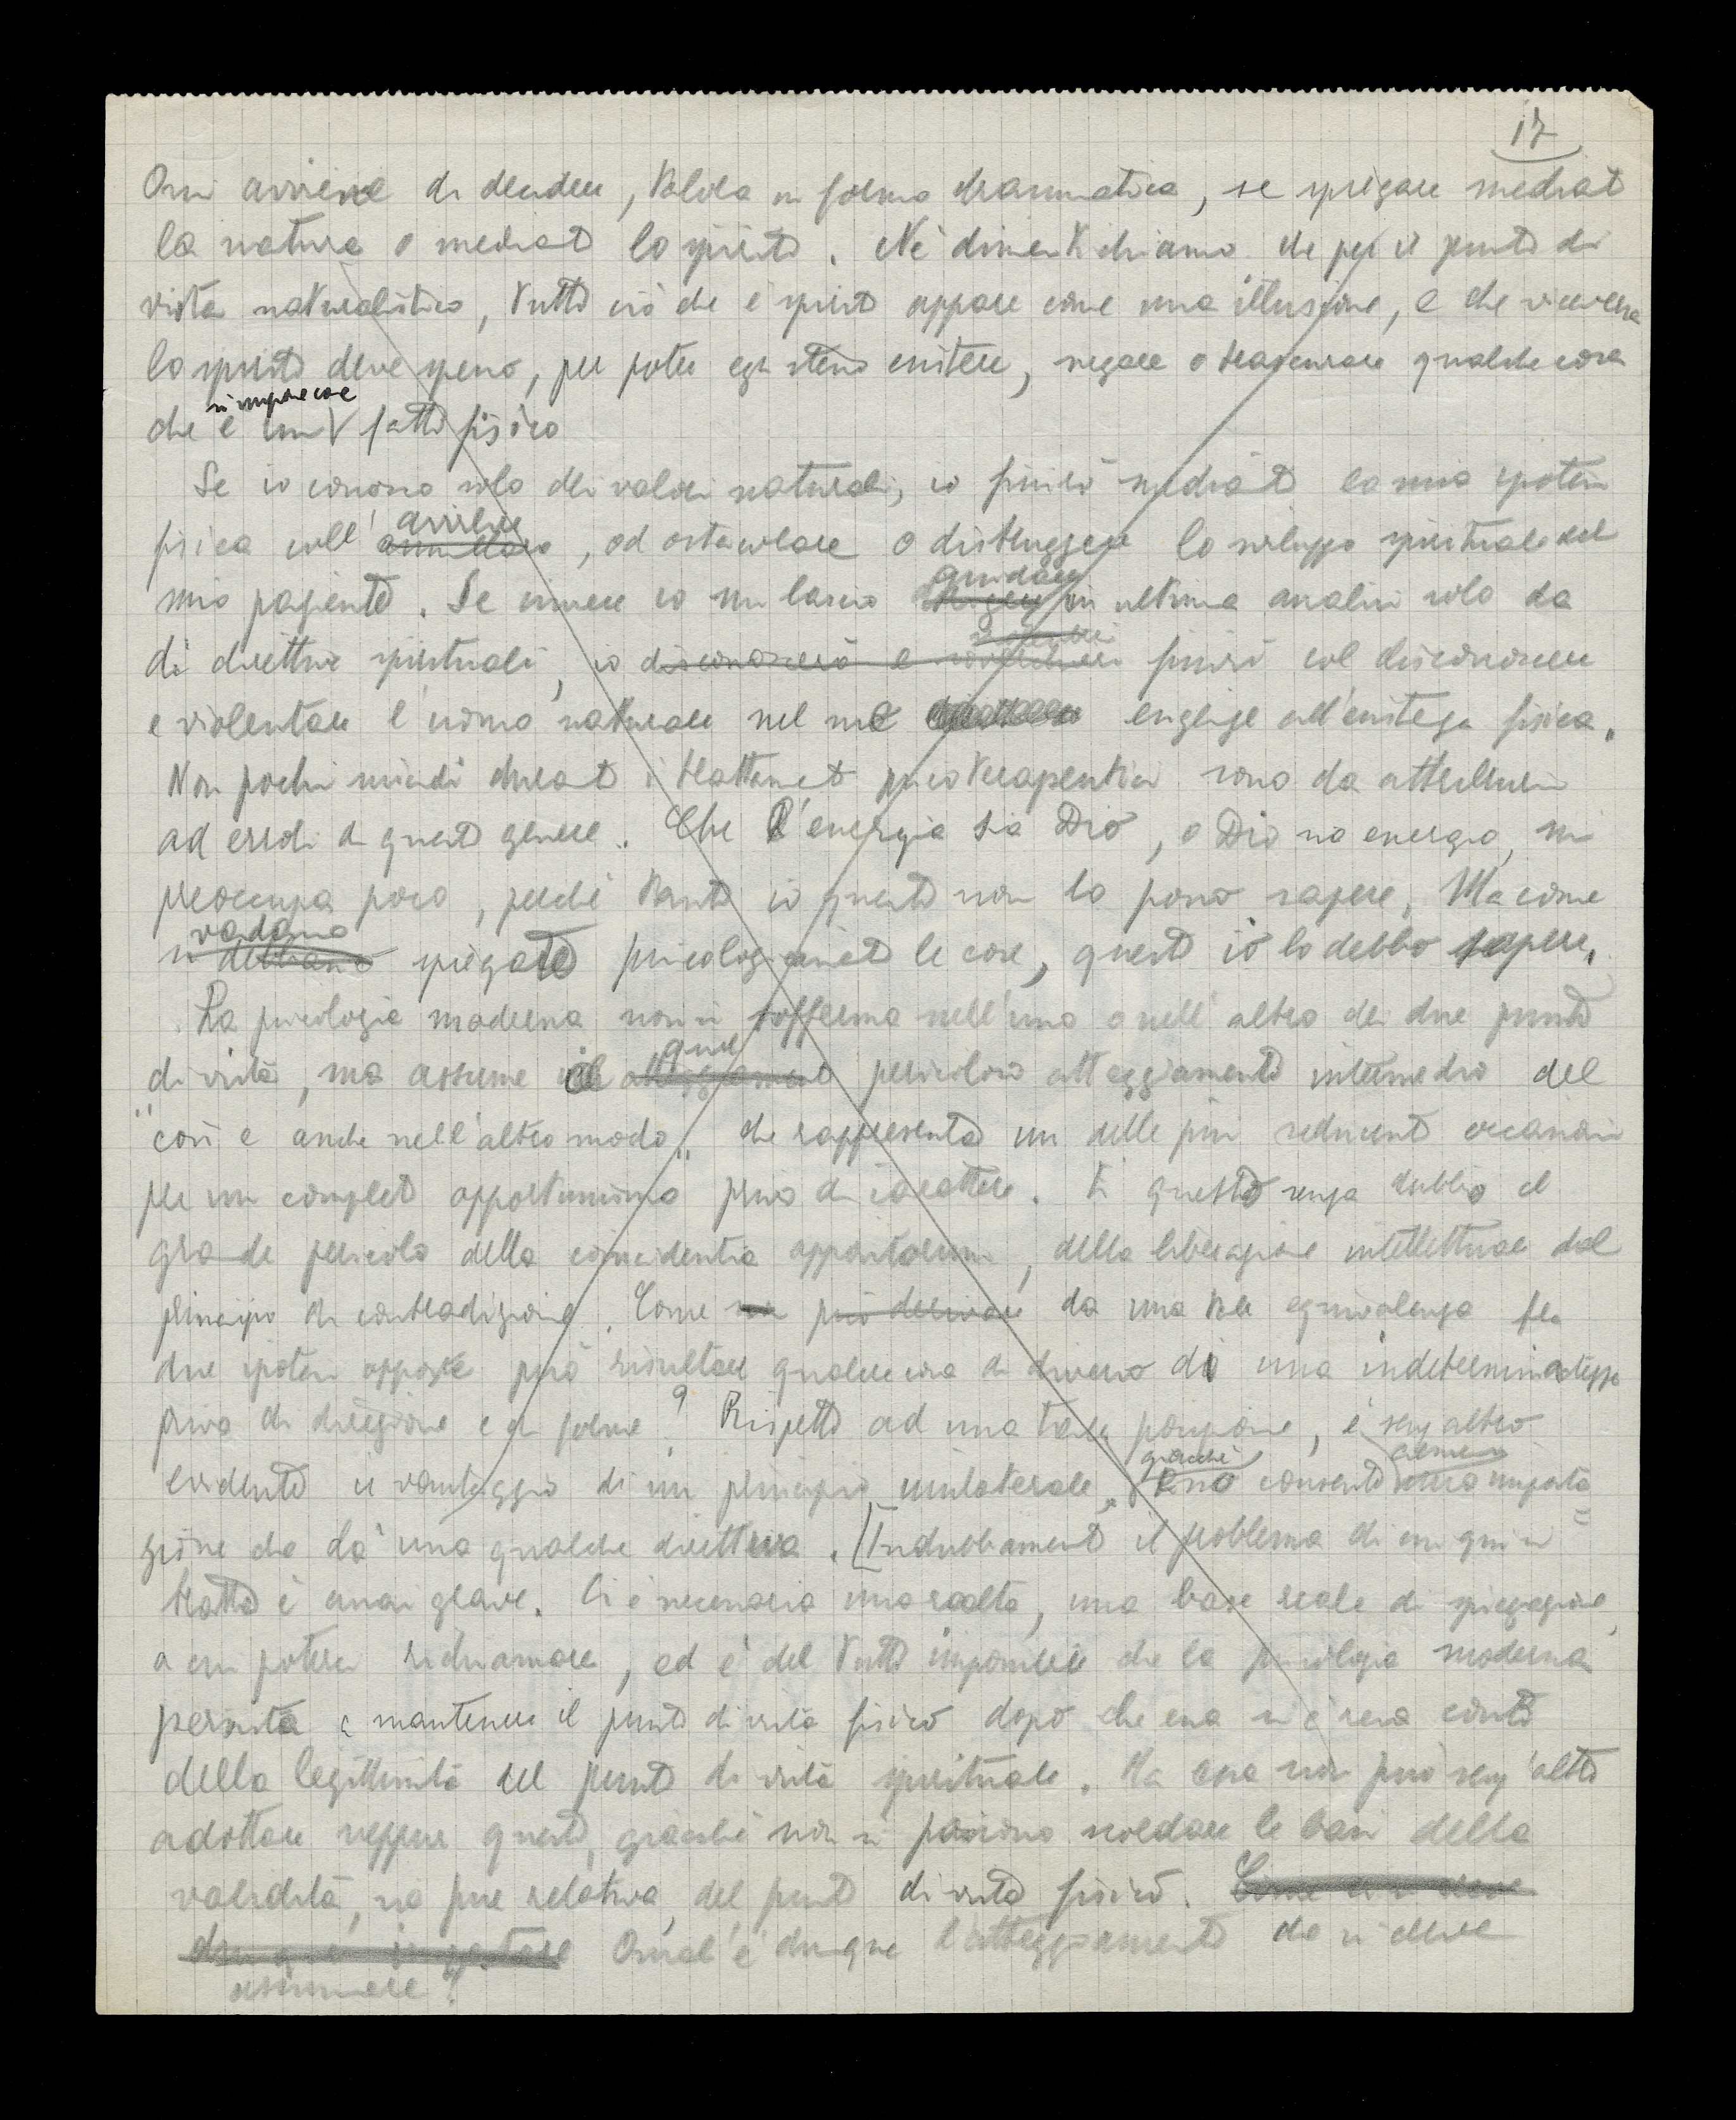 17
Qui avviene di decidere, talora in forma drammatica, se spiegare mediat
la natura o mediat lo spirito. Nè dimentichiamo che per il punto di
vista naturalistico, tutto ciò che è spirito appare come una illusione, e che viceversa
lo spirito deve spesso, per poter egli stesso esistere, negare o trascurare qualche cosa
si impone come
che è un fatto fisico
Se io conosco solo dei valori naturali, io finirò mediat la mia ipotesi
avvilire
fisica coll' , od ostacolare o distruggere lo sviluppo spirituale del
guidare
mio paziente. Se invece io mi lascio in ultima analisi solo da
di direttive spirituali, io disconoscerò e finirò col disconoscere
e violentare l'uomo naturale nel suo esigenze all'esistenza fisica.
Non pochi suicidi durat i trattamet psicoterapeutici sono da attribuirsi
ad errori di questo genere. Che l'energia sia Dio, o Dio sia energia, mi
preoccupa poco, perchè tanto io questo non lo posso sapere. Ma come
vadano
si debbano spiegate psicologicamet le cose, questo io lo debbo sapere.
La psicologia moderna non si sofferma nell'uno o nell'altro dei due punti
quel
di vista, ma assume il atteggiamento pericoloso atteggiamento intermedio del
"così e anche nell'altro modo" che rappresenta un delle più seducenti occasioni
per un completo opportunismo privo di carattere. È questo senza dubbio il
grande pericolo della coincidentia oppositorum, della liberazione intellettuale dal
principio di contradizione. Come può derivare da una tale equivalenza fra
due ipotesi opposte può risultare qualche cosa di diverso da una indeterminatezza
priva di direzione e di forme? Rispetto ad una tale posizione, è senz'altro
giacchè almeno
evidente il vantaggio di un principio unilaterale, esso consente una imposta=
zione che dà una qualche direttiva. [Indubbiamente il problema di cui qui si
tratta è assai grave. Ci è necessaria una realtà, una base reale di spiegazione,
a cui poterci richiamare, ed è del tutto impossibile che la psicologia moderna
persista a mantenere il punto di vista fisico dopo che essa si è resa conto
della legittimità del punto di vista spirituale. Ma essa non può senz'altro
adottare neppure questo, giacchè non si possono scordare le basi della
validità, sia pure relativa, del punto di vista fisico. Come si deve
dunque impostare Qual'è dunque l'atteggiamento che si deve
assumere?